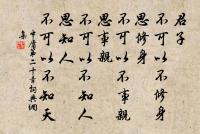 君子
不可以不修身
思修身
不可以不事親
思事親
不可以不知人
思知人
不可以不知天
中庸第二十章詞典網
集